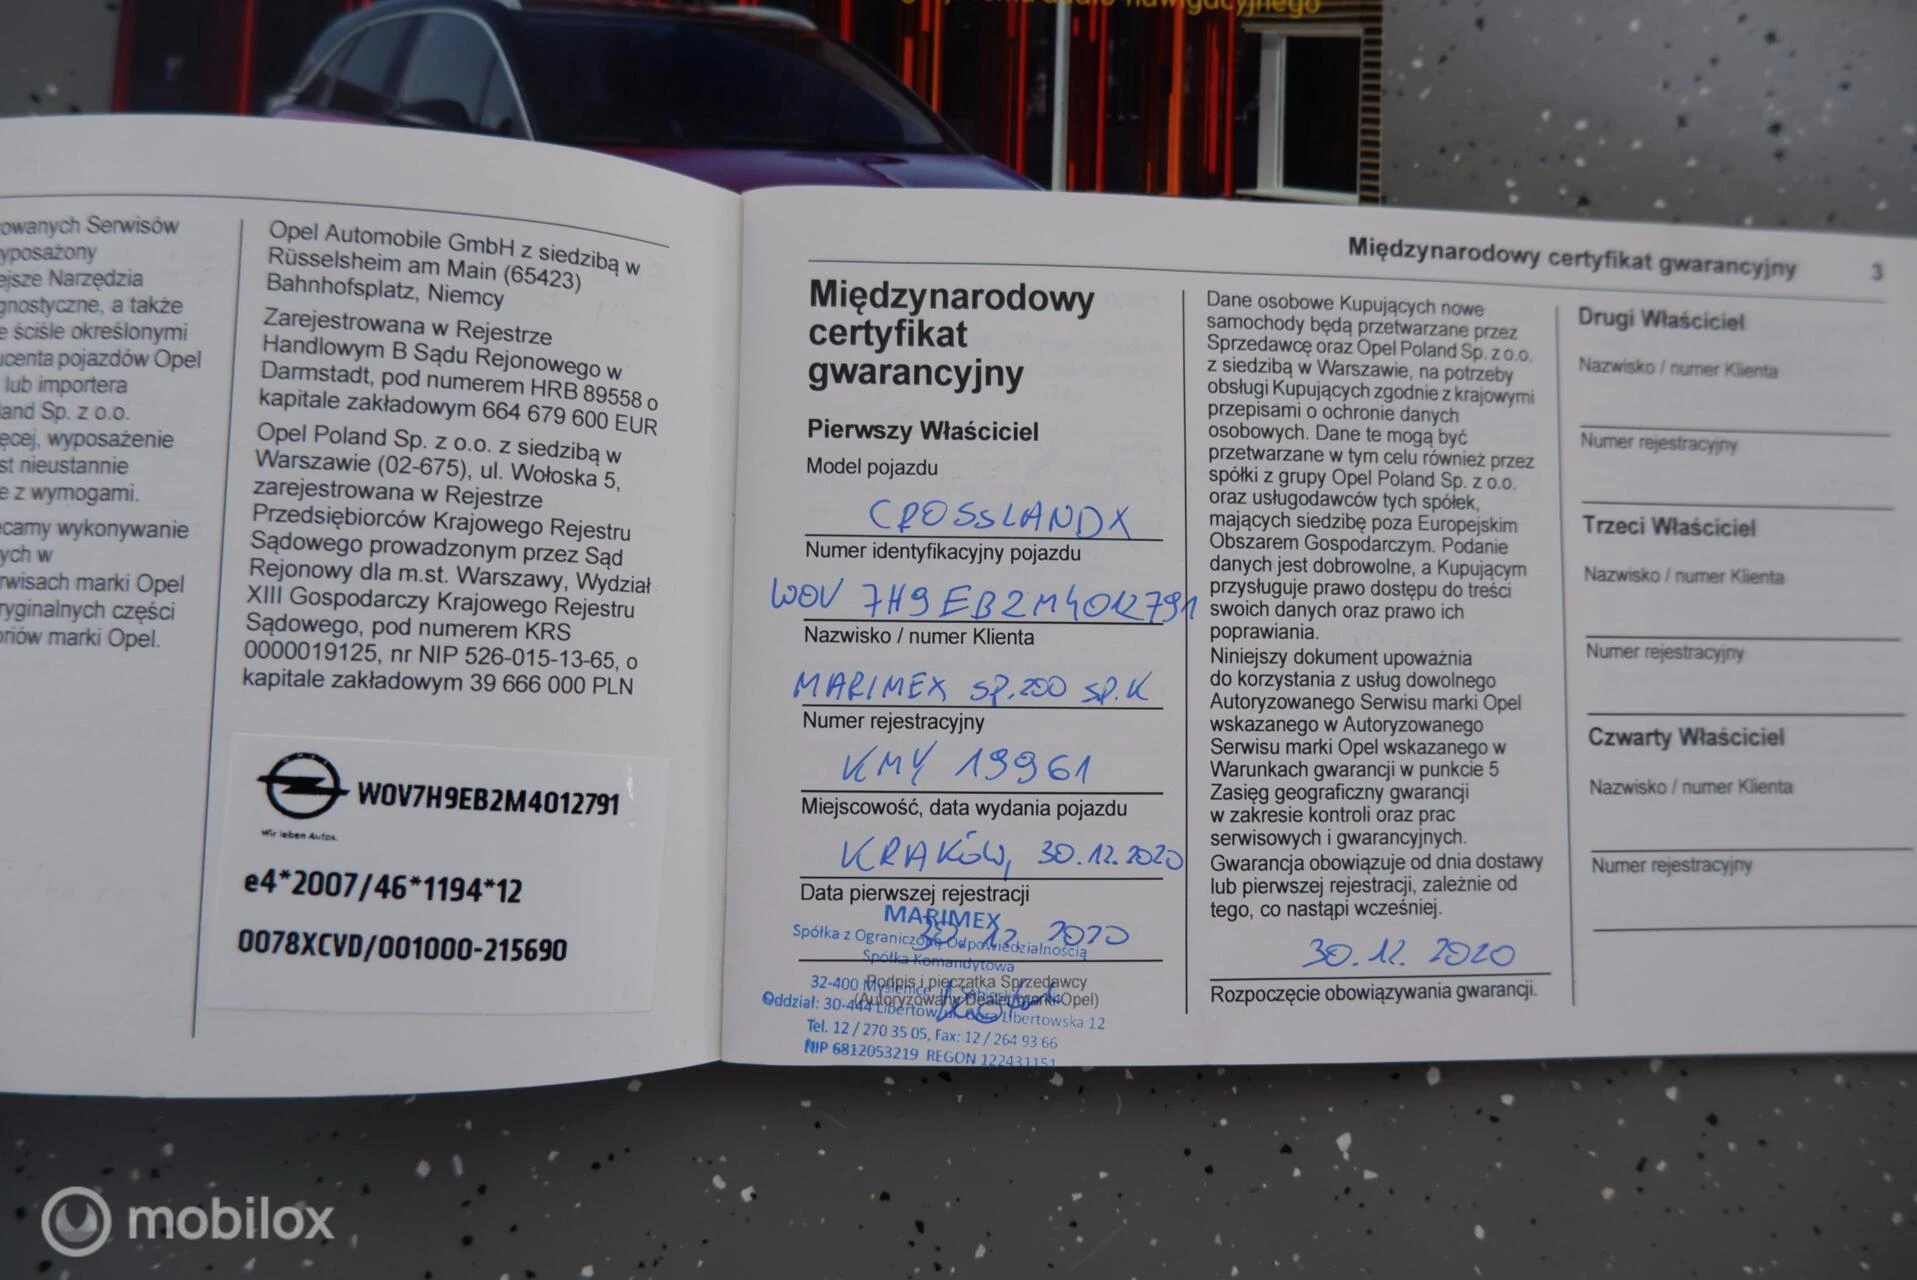 gwarancyjnego
owanych Serwisów
yposażony
ejsze Narzędzia
gnostyczne, a także
e ściśle określonymi
ucenta pojazdów Opel
lub importera
land Sp. z o.o.
ęcej, wyposażenie
st nieustannie
e z wymogami.
camy wykonywanie
ych w
rwisach marki Opel
ryginalnych części
oriów marki Opel.
Opel Automobile GmbH z siedzibą w
Rüsselsheim am Main (65423)
Bahnhofsplatz, Niemcy
Zarejestrowana w Rejestrze
Handlowym B Sądu Rejonowego w
Darmstadt, pod numerem HRB 89558 o
kapitale zakładowym 664 679 600 EUR
Opel Poland Sp. z o.o. z siedzibą w
Warszawie (02-675), ul. Wołoska 5,
zarejestrowana w Rejestrze
Przedsiębiorców Krajowego Rejestru
Sądowego prowadzonym przez Sąd
Rejonowy dla m.st. Warszawy, Wydział
XIII Gospodarczy Krajowego Rejestru
Sądowego, pod numerem KRS
0000019125, nr NIP 526-015-13-65, o
kapitale zakładowym 39 666 000 PLN
OPEL
W0V7H9EB2M4012791
Wir leben Autos.
e4*2007/46*1194*12
0078XCVD/001000-215690
Międzynarodowy certyfikat gwarancyjny 3
Międzynarodowy
certyfikat
gwarancyjny
Pierwszy Właściciel
Model pojazdu
CROSSLANDX
Numer identyfikacyjny pojazdu
WOV 7H9EB2M4012791
Nazwisko / numer Klienta
MARIMEX SP.ZOO SP.K
Numer rejestracyjny
KMY 19961
Miejscowość, data wydania pojazdu
KRAKÓW, 30.12.2020
Data pierwszej rejestracji
MARIMEX
30.12.2020
Spółka z Ograniczoną Odpowiedzialnością
Spółka Komandytowa
Podpis i pieczątka Sprzedawcy
32-400 Myślenice
(Autoryzowany Dealer marki Opel)
Oddział: 30-444 Libertów, ul. Góra Libertowska 12
Tel. 12 / 270 35 05, Fax: 12 / 264 93 66
NIP 6812053219 REGON 122431151
Dane osobowe Kupujących nowe
samochody będą przetwarzane przez
Sprzedawcę oraz Opel Poland Sp. z o.o.
z siedzibą w Warszawie, na potrzeby
obsługi Kupujących zgodnie z krajowymi
przepisami o ochronie danych
osobowych. Dane te mogą być
przetwarzane w tym celu również przez
spółki z grupy Opel Poland Sp. z o.o.
oraz usługodawców tych spółek,
mających siedzibę poza Europejskim
Obszarem Gospodarczym. Podanie
danych jest dobrowolne, a Kupującym
przysługuje prawo dostępu do treści
swoich danych oraz prawo ich
poprawiania.
Niniejszy dokument upoważnia
do korzystania z usług dowolnego
Autoryzowanego Serwisu marki Opel
wskazanego w Autoryzowanego
Serwisu marki Opel wskazanego w
Warunkach gwarancji w punkcie 5
Zasięg geograficzny gwarancji
w zakresie kontroli oraz prac
serwisowych i gwarancyjnych.
Gwarancja obowiązuje od dnia dostawy
lub pierwszej rejestracji, zależnie od
tego, co nastąpi wcześniej.
30.12.2020
Rozpoczęcie obowiązywania gwarancji.
Drugi Właściciel
Nazwisko / numer Klienta
Numer rejestracyjny
Trzeci Właściciel
Nazwisko / numer Klienta
Numer rejestracyjny
Czwarty Właściciel
Nazwisko / numer Klienta
Numer rejestracyjny
mobilox